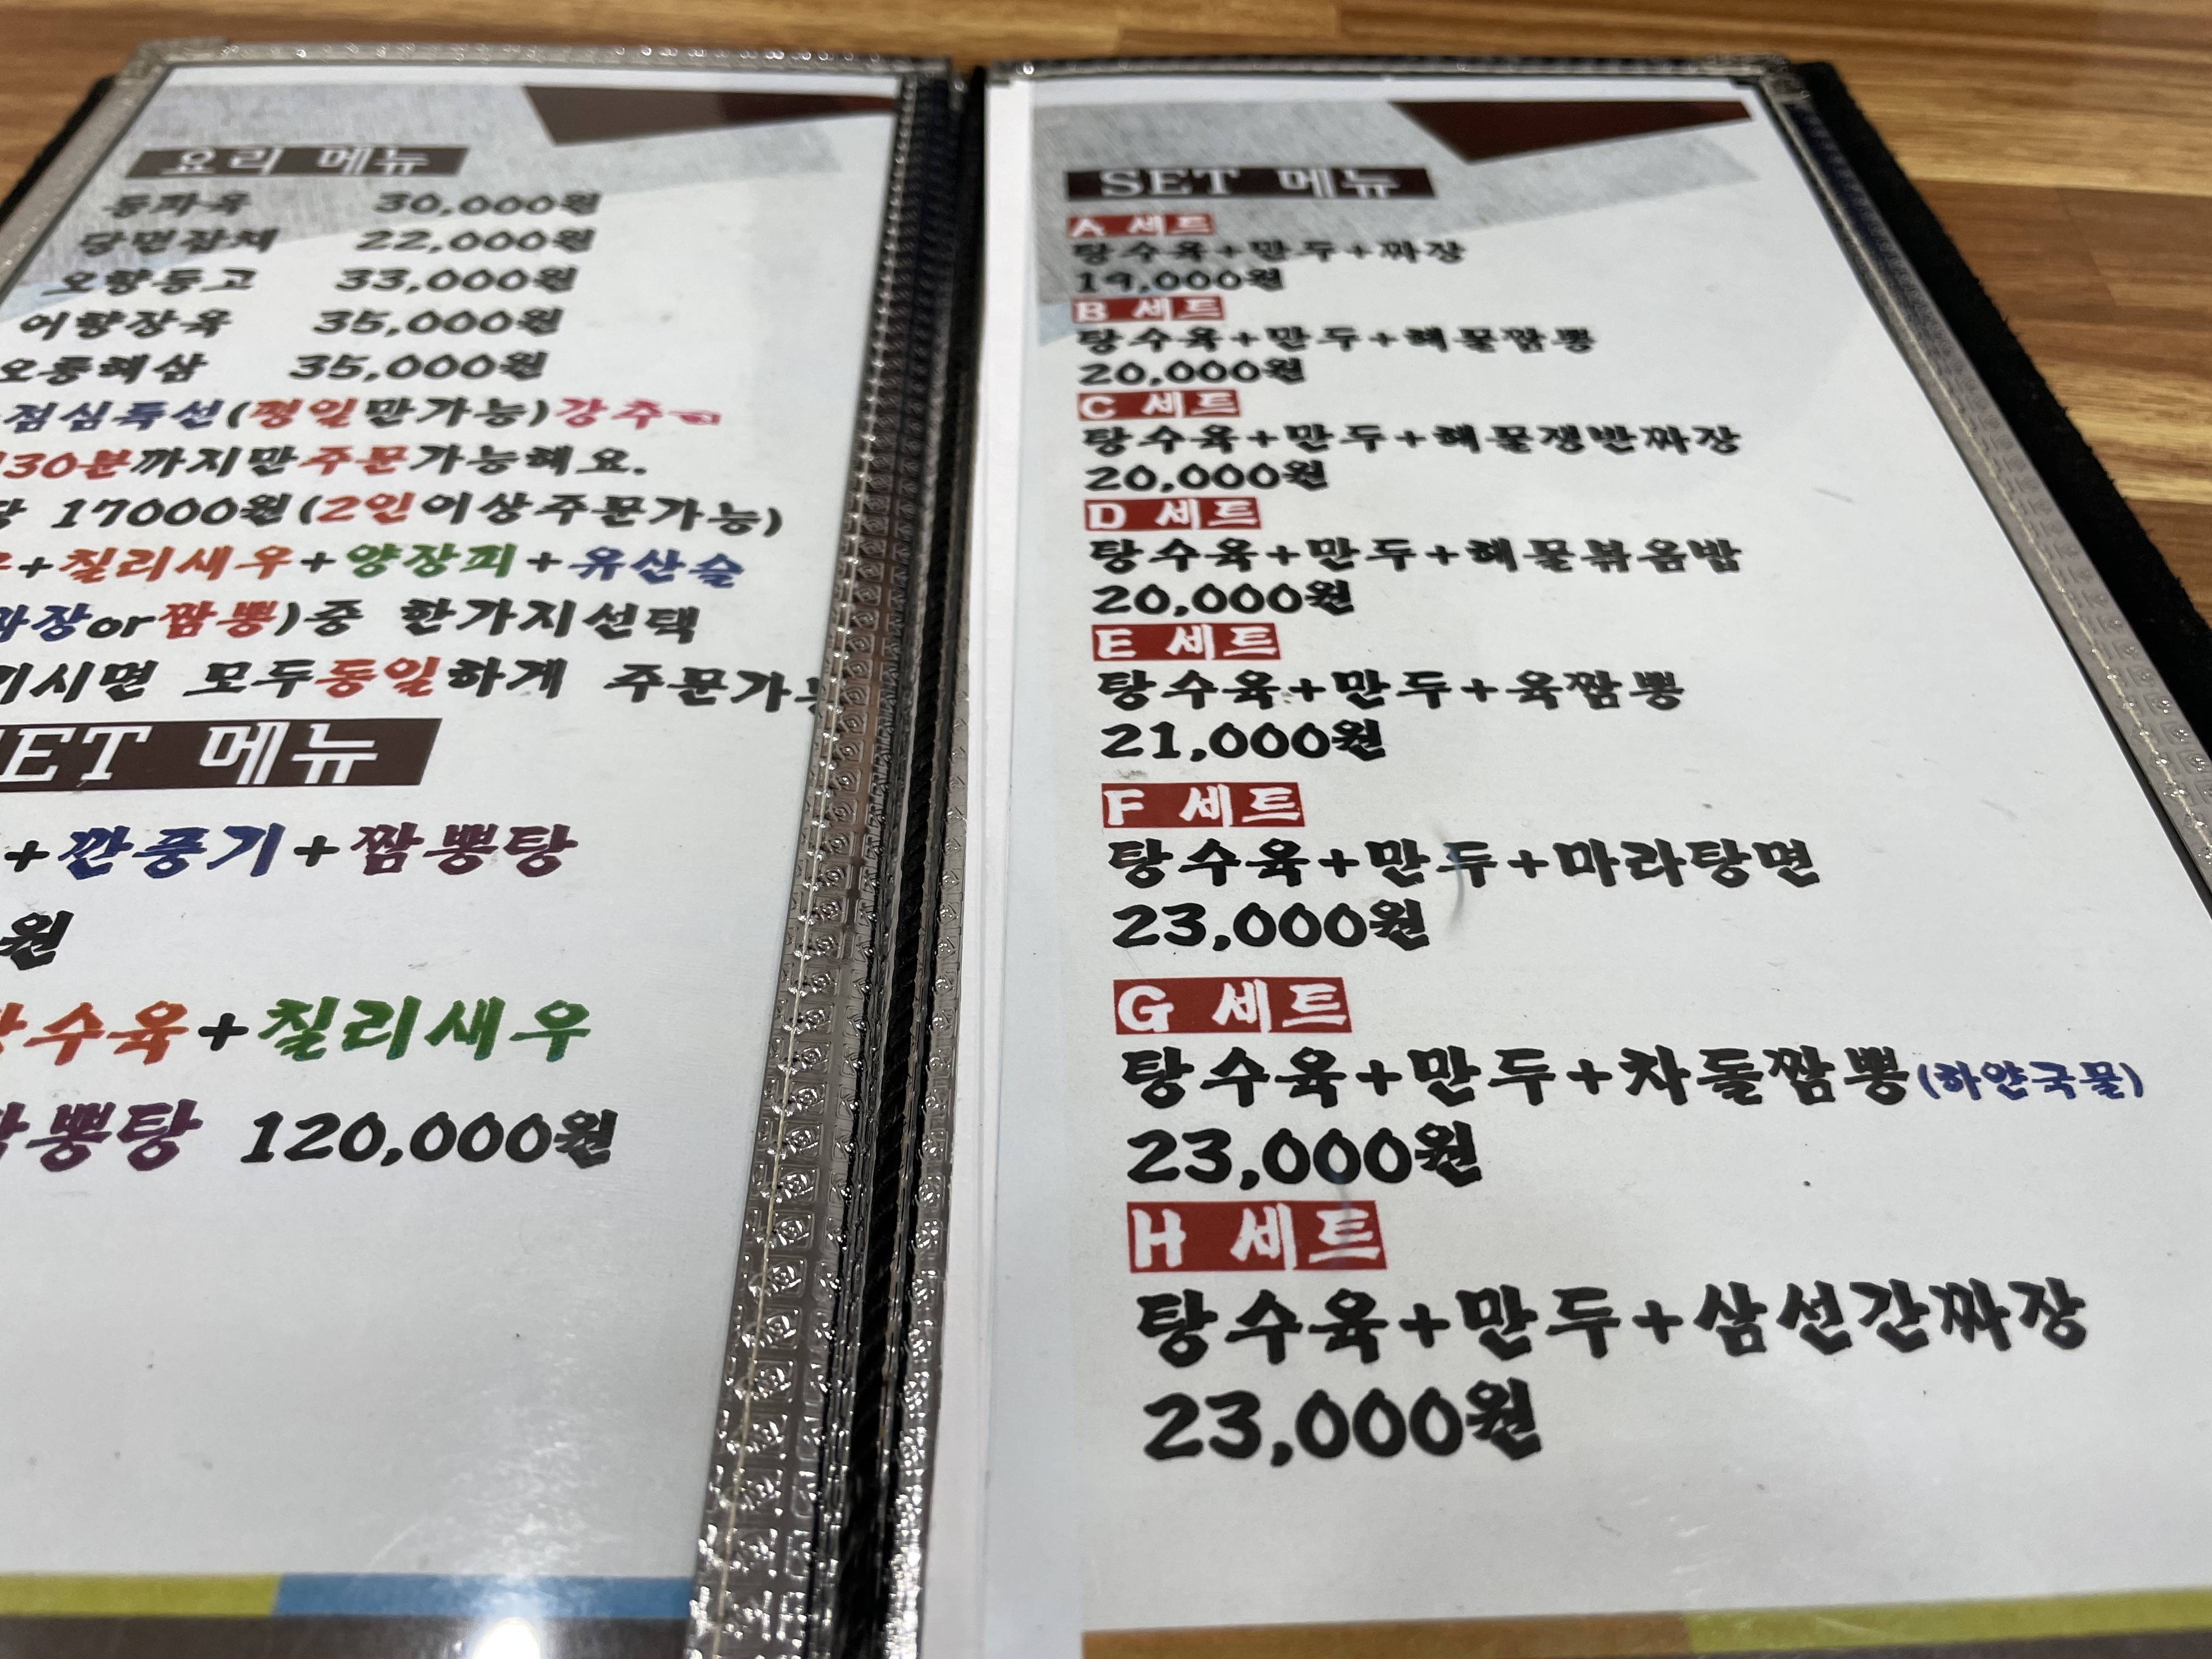 요리 메뉴
동파육 30,000원
당면잡채 22,000원
오향동고 33,000원
어향장육 35,000원
오룡해삼 35,000원
점심특선(평일만가능)강추☜
30분까지만주문가능해요.
당 17000원(2인이상주문가능)
+칠리새우+양장피+유산슬
짜장or짬뽕)중 한가지선택
시면 모두동일하게 주문가능
SET 메뉴
+깐풍기+짬뽕탕
원
탕수육+칠리새우
짬뽕탕 120,000원
SET 메뉴
A 세트
탕수육+만두+짜장
19,000원
B 세트
탕수육+만두+해물짬뽕
20,000원
C 세트
탕수육+만두+해물쟁반짜장
20,000원
D 세트
탕수육+만두+해물볶음밥
20,000원
E 세트
탕수육+만두+육짬뽕
21,000원
F 세트
탕수육+만두+마라탕면
23,000원
G 세트
탕수육+만두+차돌짬뽕(하얀국물)
23,000원
H 세트
탕수육+만두+삼선간짜장
23,000원